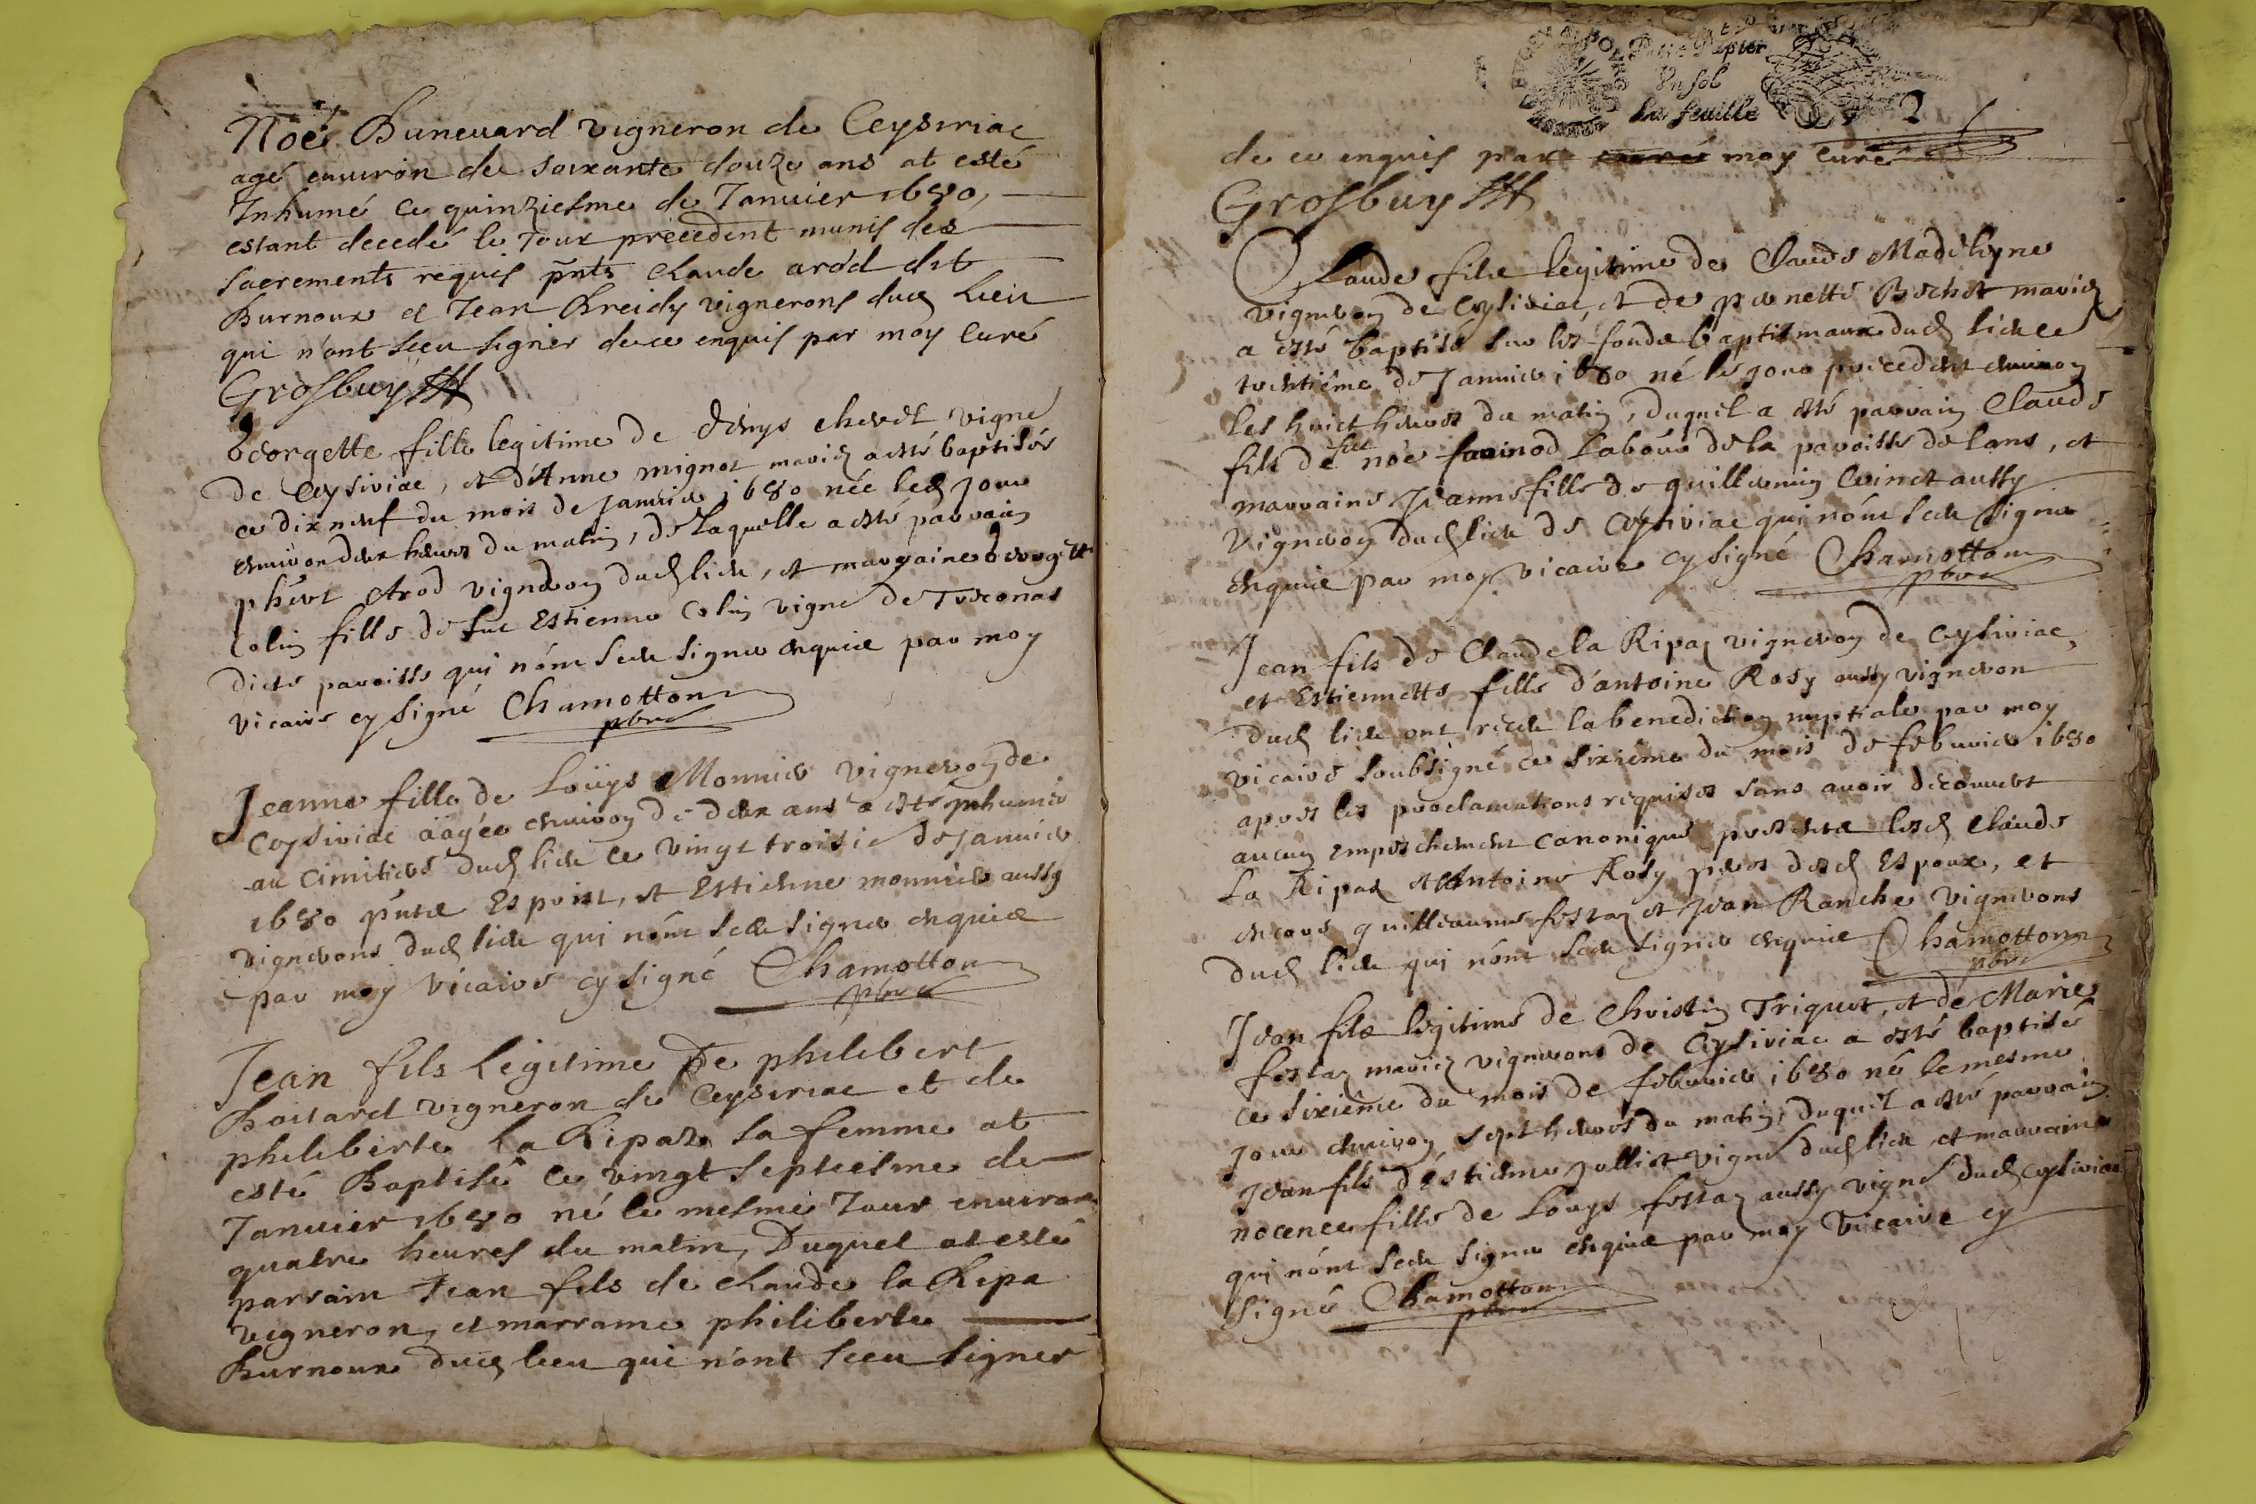 Noé Buneuard vigneron de Ceysiriac
agé enuiron de soixante douze ans at esté
Inhumé ce quinziesme de Januier 1680,
estant decedé le Jour precedent munis des
sacrements requis pnts Claude arod dit
Burnoux et Jean Breidy vignerons dud Lieu
qui n'ont sceu signer de ce enquis par moy Curé
Grosbuy
Georgette fille legitime de denys chevet vigne
de Ceysiriac, et d'Anne mignot mariez a esté baptisée
ce dix neuf du mois de Januier 1680 née led Jour
enuiron deux heures du matin, de Laquelle a esté parrain
phert Arod vigneron dud lieu, et marraine George[tte]
Colin fille de fut Estienne Colin vigne de Treconas
dicte paroisse qui n'ont sceu signer enquis par moy
vicaire cy signé Chamotton
pbre
Jeanne fille de Loüys Monnier vigneron de
Ceysiriac aagée enuiron de deux ans a esté inhumée
au cimitiere dud lieu ce vingt troisie de Januier
1680 pnts Esprit, et Estienne monnier aussy
vignerons dud lieu qui n'ont sceu signer enquis
par moy vicaire cy signé Chamotton
pbre
Jean fils Legitime De philibert
Boitard vigneron de Ceysiriac et de
philiberte La Ripaz sa femme at
esté Baptisé ce vingt septiesme de
Januier 1680 né le mesme Jour enuiron
quatre heures du matin, Duquel at esté
parrain Jean fils de Claude la Ripa
vigneron, et marraine philiberte
Burnoux dud lieu qui n'ont sceu signer
Petit Papier
Un sol
La feuille
2
de ce enquis par moy Curé
Grosbuy
Claude fils legitime de Claude Madeleyne
vigneron de Ceysiriac, et de pernette Bochet mariez
a esté baptisé sur les fonds baptismaux dud lieu ce
trentiéme de Januier 1680 né le jour precedent enuiron
les huict heures du matin, duquel a esté parrain Claude
fils de fut noé faminod Laboür de la paroisse de Lans, et
marraine Jeanne fille de guillermin Cuinet aussy
vigneron dud lieu de Ceysiriac qui n'ont sceu signer
enquis par moy vicaire cy signé Chamotton
pbre
Jean fils de Claude la Ripaz vigneron de Ceysiriac,
et Estiennette fille d'antoine Rosy aussy vigneron
dud lieu ont receu la benediction nuptiale par moy
vicaire soubsigné ce sixiéme du mois de feburier 1680
apres les proclamations requises sans auoir decouuert
aucun empeschement canonique presents lesd Claude
La Ripaz et Antoine Rosy peres desd Espoux, et
encore guilleaume fostaz et Jean Ranche vignerons
dud lieu qui n'ont sceu signer enquis Chamotton
pbre
Jean fils legitime de Christin Triquet, et de Marie
fostaz mariez vignerons de Ceysiriac a esté baptisé
ce sixiéme du mois de feburier 1680 né le mesme
jour enuiron sept heures du matin, duquel a esté parrain
Jean fils d'éstienne Jolliet vigne dud lieu et marraine
nocence fille de Louys fostaz aussy vigne dud Ceysiriac
qui n'ont sceu signer enquis par moy vicaire cy
signé Chamotton
pbre